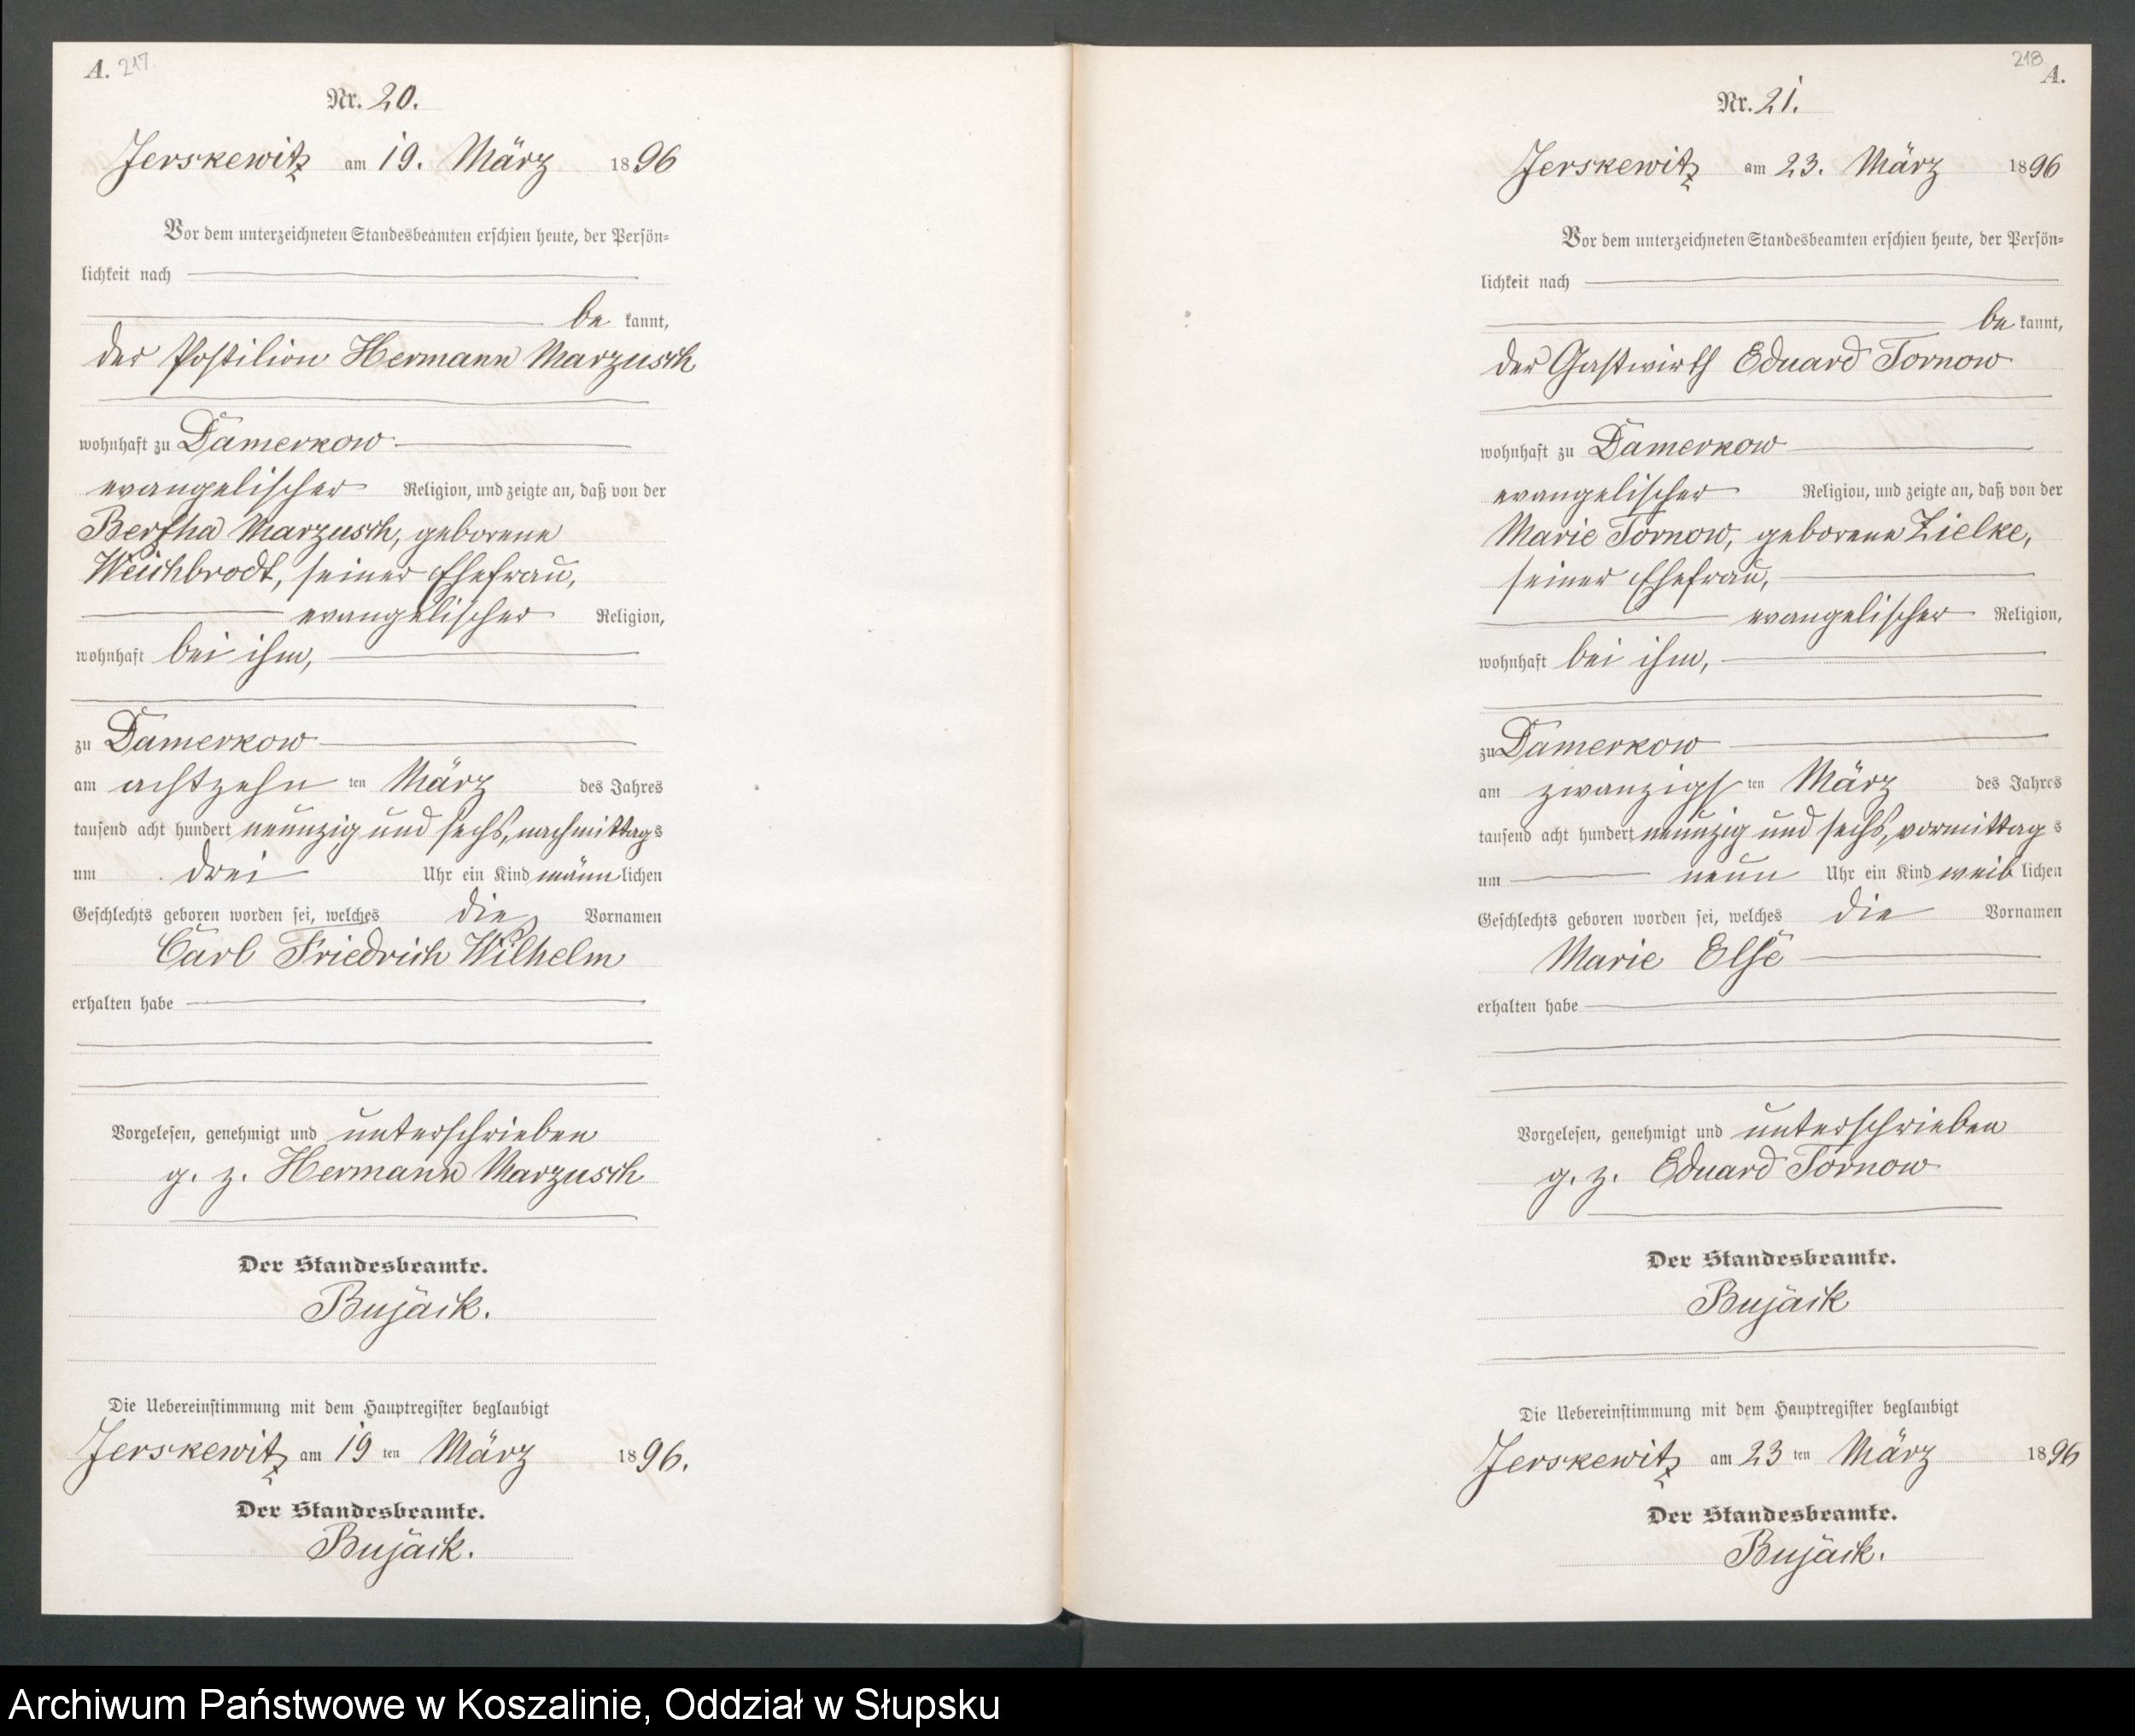 A. 217.
Nr. 20.
Jerskewitz am 19. März 1896
Vor dem unterzeichneten Standesbeamten erschien heute, der Persön-
lichkeit nach
be kannt,
der Postilion Hermann Marzusch
wohnhaft zu Damerkow
evangelischer Religion, und zeigte an, daß von der
Bertha Marzusch, geborene
Weichbrodt, seiner Ehefrau,
evangelischer Religion,
wohnhaft bei ihm,
zu Damerkow
am achtzehn ten März des Jahres
tausend acht hundert neunzig und sechs, nachmittags
um drei Uhr ein Kind männlichen
Geschlechts geboren worden sei, welches die Vornamen
Carl Friedrich Wilhelm
erhalten habe
Vorgelesen, genehmigt und unterschrieben
g. z. Hermann Marzusch
Der Standesbeamte.
Bujack.
Die Uebereinstimmung mit dem Hauptregister beglaubigt
Jerskewitz am 19 ten März 1896.
Der Standesbeamte.
Bujack.
218. A.
Nr. 21.
Jerskewitz am 23. März 1896
Vor dem unterzeichneten Standesbeamten erschien heute, der Persön-
lichkeit nach
be kannt,
der Gastwirth Eduard Tornow
wohnhaft zu Damerkow
evangelischer Religion, und zeigte an, daß von der
Marie Tornow, geborene Zielke,
seiner Ehefrau,
evangelischer Religion,
wohnhaft bei ihm,
zu Damerkow
am zwanzigs ten März des Jahres
tausend acht hundert neunzig und sechs, vormittags
um neun Uhr ein Kind weib lichen
Geschlechts geboren worden sei, welches die Vornamen
Marie Else
erhalten habe
Vorgelesen, genehmigt und unterschrieben
g. z. Eduard Tornow
Der Standesbeamte.
Bujack
Die Uebereinstimmung mit dem Hauptregister beglaubigt
Jerskewitz am 23 ten März 1896
Der Standesbeamte.
Bujack.
Archiwum Państwowe w Koszalinie, Oddział w Słupsku